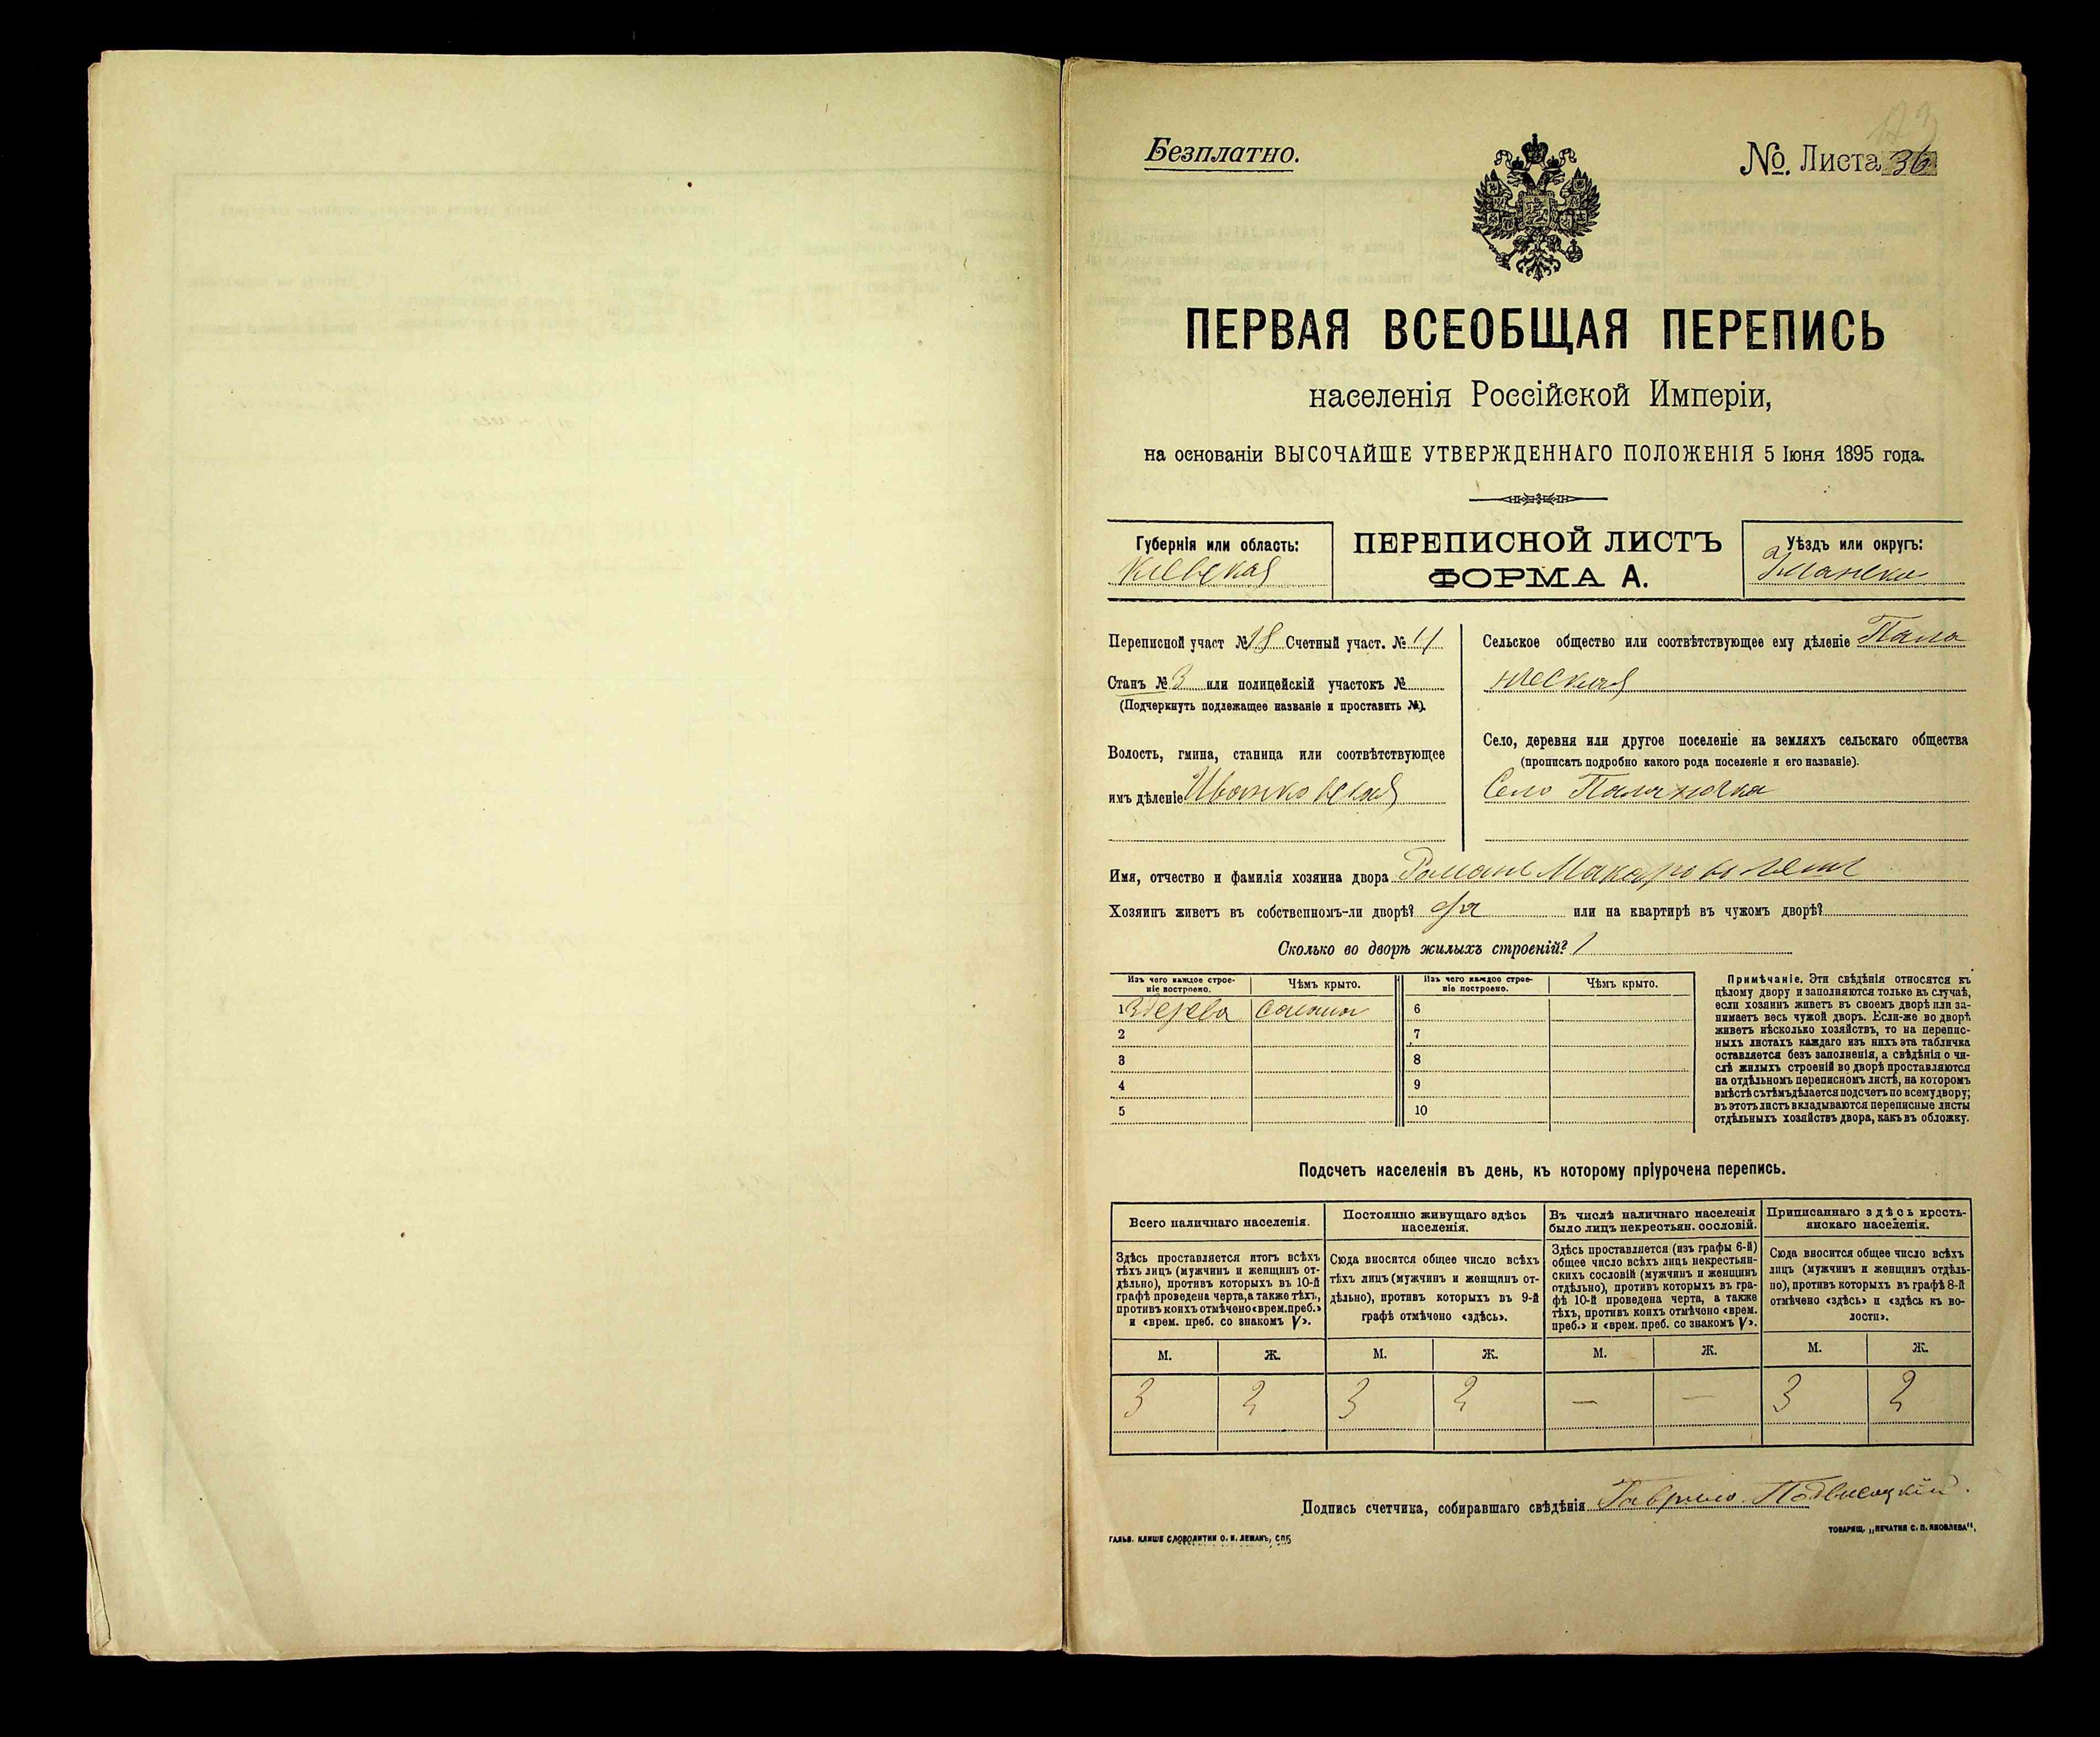 Безплатно.
№ Листа 36
ПЕРВАЯ ВСЕОБЩАЯ ПЕРЕПИСЬ
населенія Россійской Имперіи,
на основаніи ВЫСОЧАЙШЕ УТВЕРЖДЕННАГО ПОЛОЖЕНІЯ 5 Іюня 1895 года.
Губернія или область:
Кіевская
ПЕРЕПИСНОЙ ЛИСТЪ
ФОРМА А.
Уѣздъ или округъ:
Переписной участ № 18 Счетный участ. № 11
Станъ № 3 или полицейскій участокъ №
(Подчеркнуть подлежащее названіе и проставить №).
Волость, гмина, станица или соотвѣтствующее
имъ дѣленіе Иваньковская
Сельское общество или соотвѣтствующее ему дѣленіе
Село, деревня или другое поселеніе на земляхъ сельскаго общества
(прописать подробно какого рода поселеніе и его названіе).
Село Паланочка
Имя, отчество и фамилія хозяина двора Романъ
Хозяинъ живетъ въ собственномъ-ли дворѣ? да или на квартирѣ въ чужомъ дворѣ?
Сколько во дворѣ жилыхъ строеній? 1
Изъ чего каждое строе-
ніе построено.
Чѣмъ крыто.
Изъ чего каждое строе-
ніе построено.
Чѣмъ крыто.
1 здерева солома 6
2 7
3 8
4 9
5 10
Примѣчаніе. Эти свѣдѣнія относятся къ
цѣлому двору и заполняются только въ случаѣ,
если хозяинъ живетъ въ своемъ дворѣ или за-
нимаетъ весь чужой дворъ. Если-же во дворѣ
живетъ нѣсколько хозяйствъ, то на перепис-
ныхъ листахъ каждаго изъ нихъ эта табличка
оставляется безъ заполненія, а свѣдѣнія о чи-
слѣ жилыхъ строеній во дворѣ проставляются
на отдѣльномъ переписномъ листѣ, на которомъ
вмѣстѣ съ тѣмъ дѣлается подсчетъ по всему двору;
въ этотъ листъ вкладываются переписные листы
отдѣльныхъ хозяйствъ двора, какъ въ обложку.
Подсчетъ населенія въ день, къ которому пріурочена перепись.
Всего наличнаго населенія.
Здѣсь проставляется итогъ всѣхъ
тѣхъ лицъ (мужчинъ и женщинъ от-
дѣльно), противъ которыхъ въ 10-й
графѣ проведена черта, а также тѣхъ,
противъ коихъ отмѣчено «врем. преб.»
и «врем. преб. со знакомъ V».
Постоянно живущаго здѣсь
населенія.
Сюда вносится общее число всѣхъ
тѣхъ лицъ (мужчинъ и женщинъ от-
дѣльно), противъ которыхъ въ 9-й
графѣ отмѣчено «здѣсь».
Въ числѣ наличнаго населенія
было лицъ некрестьян. сословій.
Здѣсь проставляется (изъ графы 6-й)
общее число всѣхъ лицъ некрестьян-
скихъ сословій (мужчинъ и женщинъ
отдѣльно), противъ которыхъ въ гра-
фѣ 10-й проведена черта, а также
тѣхъ, противъ коихъ отмѣчено «врем.
преб.» и «врем. преб. со знакомъ V».
Приписаннаго здѣсь кресть-
янскаго населенія.
Сюда вносится общее число всѣхъ
лицъ (мужчинъ и женщинъ отдѣль-
но), противъ которыхъ въ графѣ 8-й
отмѣчено «здѣсь» и «здѣсь къ во-
лости».
М. Ж. М. Ж. М. Ж. М. Ж.
3 2 3 2 — — 3 2
Подпись счетчика, собиравшаго свѣдѣнія Гаврило Подвисоцкій.
ГАЛЬВ. КЛИШЕ СЛОВОЛИТНИ О. И. ЛЕМАНЪ, СПБ
ТОВАРИЩ. „ПЕЧАТНЯ С. П. ЯКОВЛЕВА",